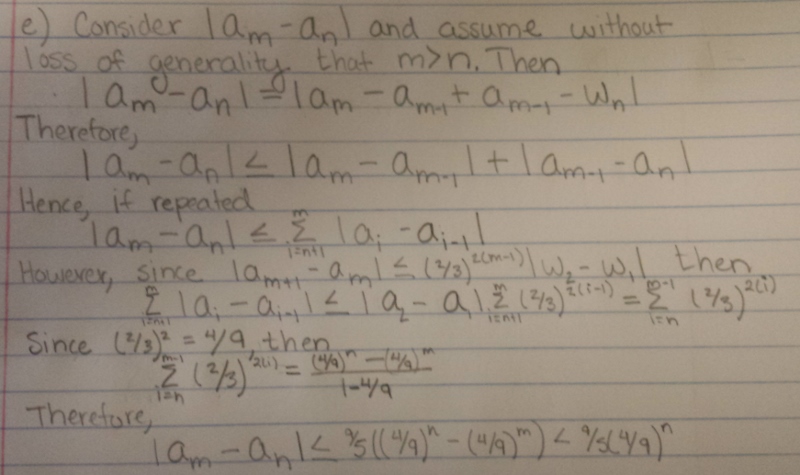 e) Consider |aₘ - aₙ| and assume without
loss of generality that m>n. Then
|aₘ - aₙ| = |aₘ - aₘ₋₁ + aₘ₋₁ - wₙ|
Therefore,
|aₘ - aₙ| ≤ |aₘ - aₘ₋₁| + |aₘ₋₁ - aₙ|
Hence, if repeated
|aₘ - aₙ| ≤ ∑_{i=n+1}^{m} |aᵢ - aᵢ₋₁|
However, since |aₘ₊₁ - aₘ| ≤ (2/3)^{2(m-1)} |w₂ - w₁| then
∑_{i=n+1}^{m} |aᵢ - aᵢ₋₁| ≤ |a₂ - a₁| ∑_{i=n+1}^{m} (2/3)^{2(i-1)} = ∑_{i=n}^{m-1} (2/3)^{2(i)}
Since (2/3)² = 4/9, then
∑_{i=n}^{m-1} (2/3)^{2(i)} = ((4/9)ⁿ - (4/9)ᵐ)/(1-4/9)
Therefore,
|aₘ - aₙ| ≤ 9/5((4/9)ⁿ - (4/9)ᵐ) < 9/5(4/9)ⁿ